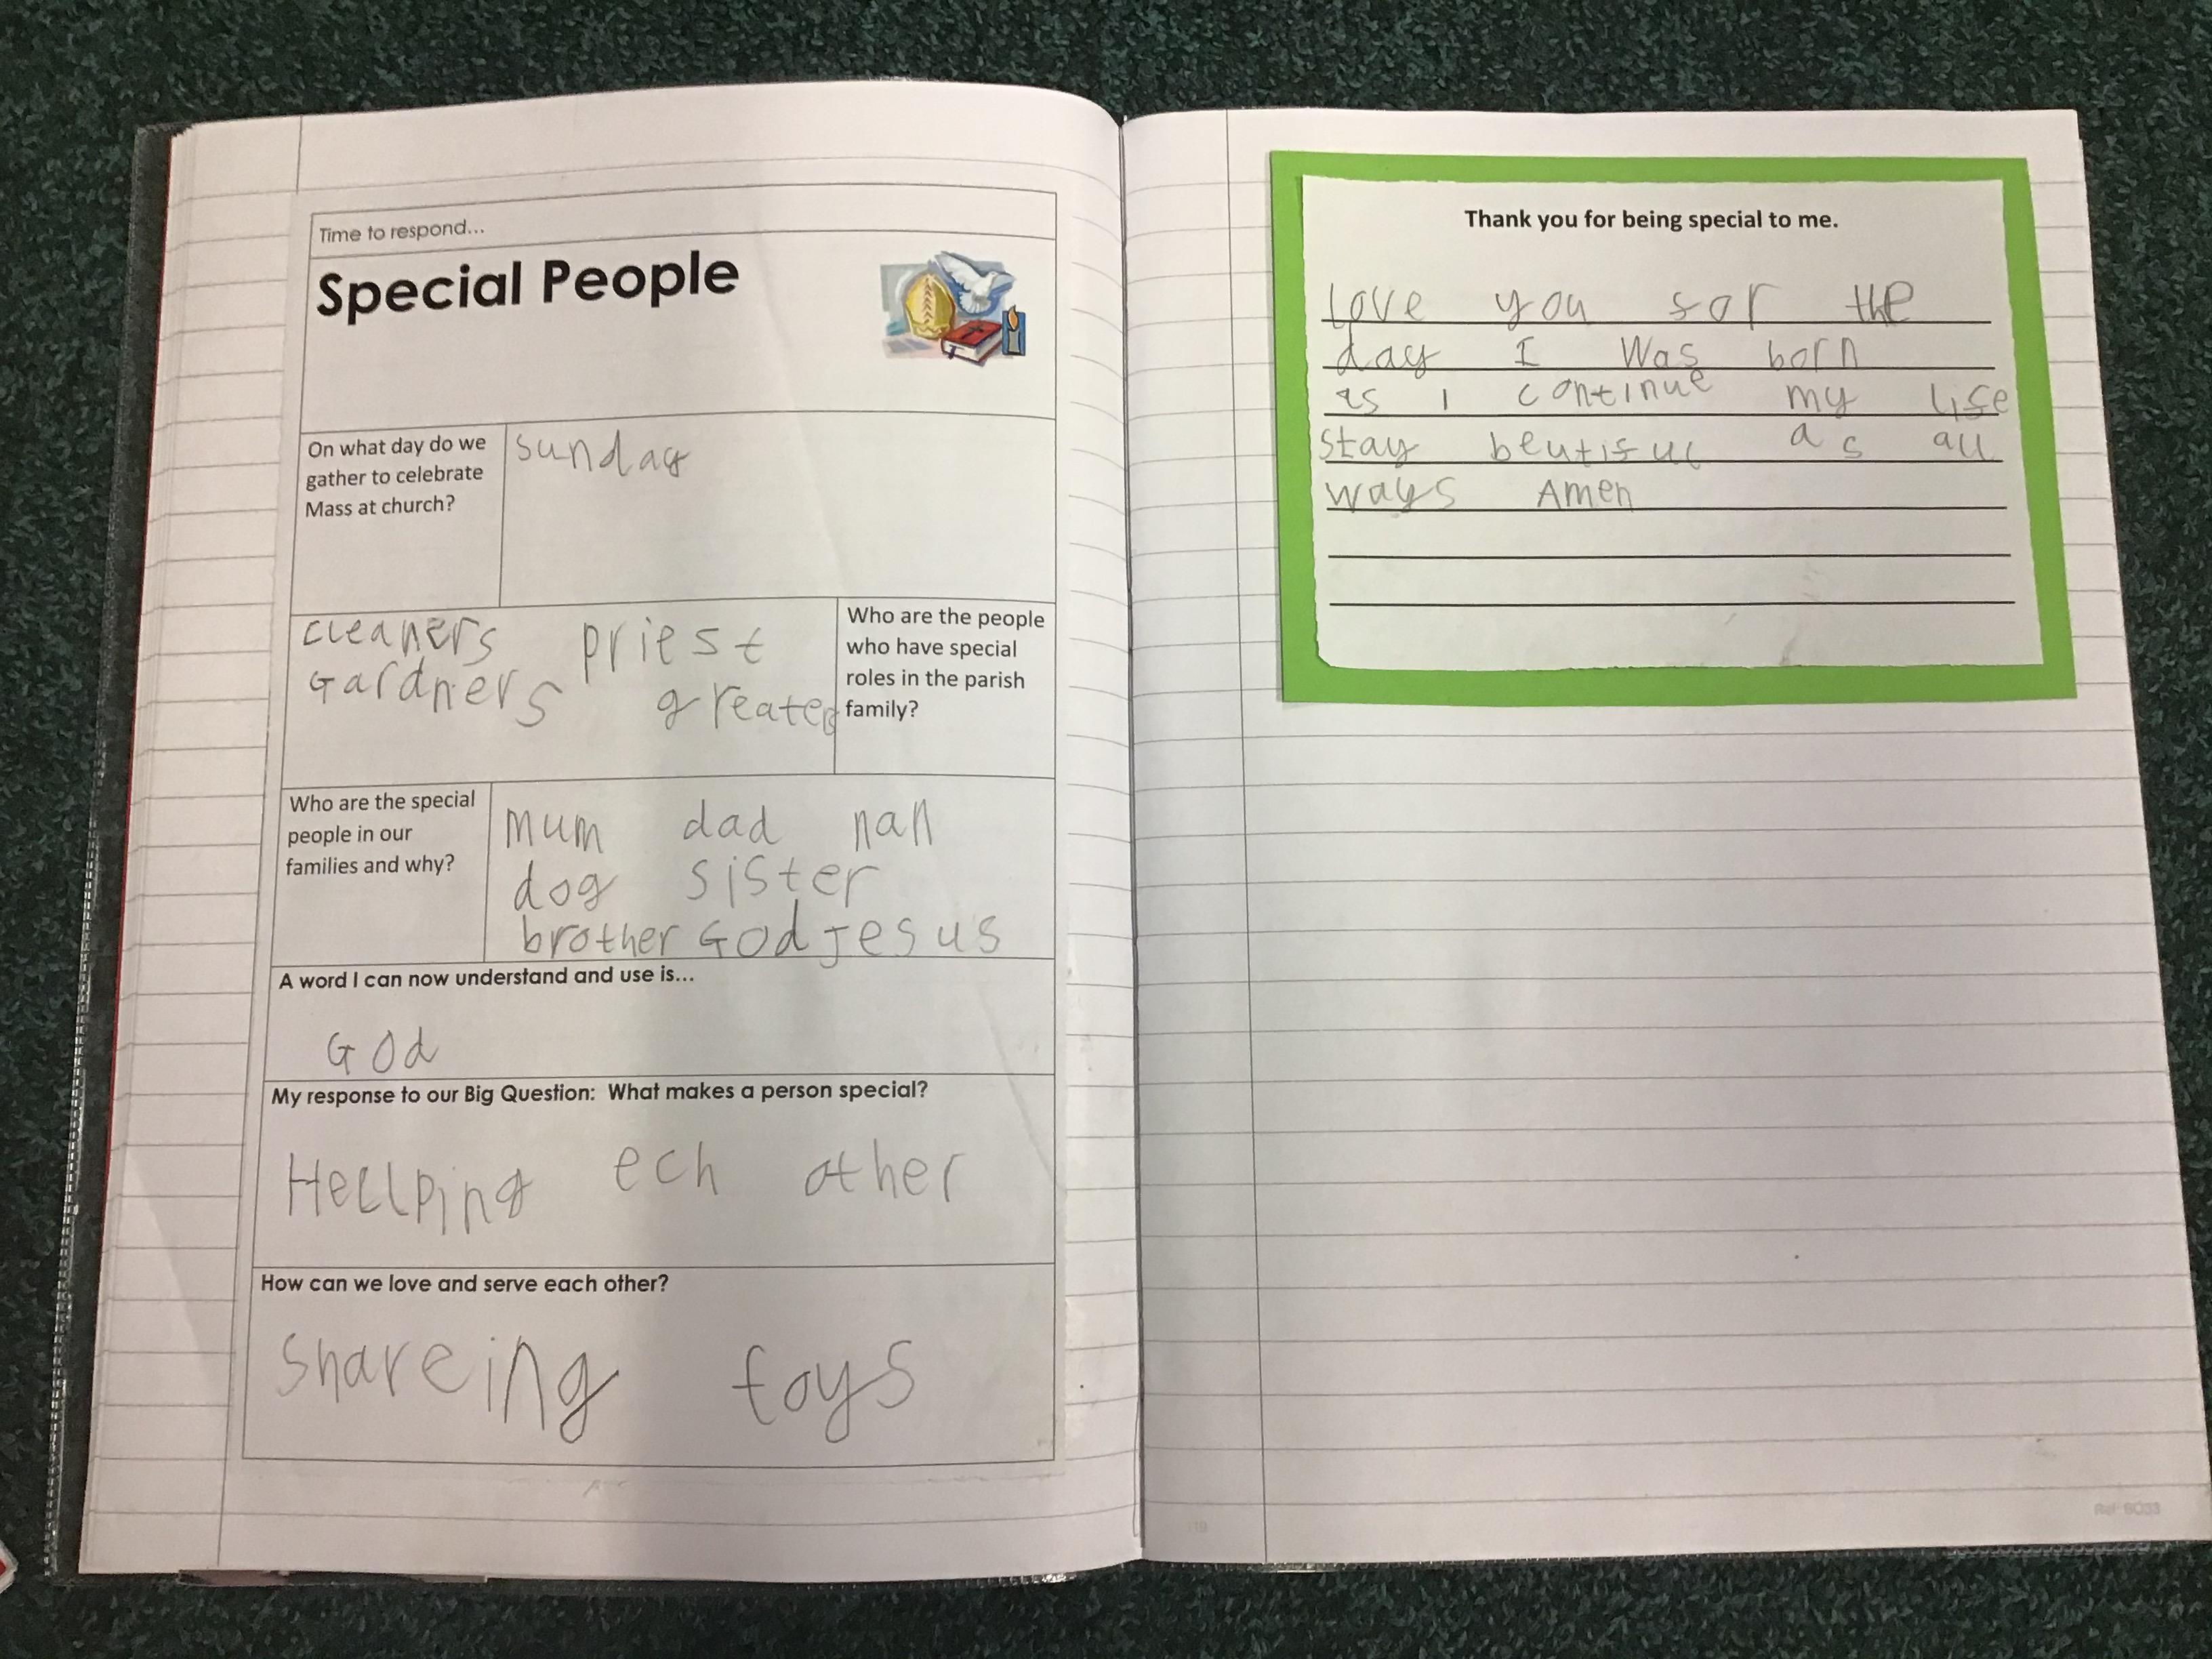 Time to respond...
Special People
On what day do we
gather to celebrate
Mass at church?
sunday
cleaners priest
Gardners greaters
Who are the people
who have special
roles in the parish
family?
Who are the special
people in our
families and why?
mum dad nan
dog sister
brother God Jesus
A word I can now understand and use is...
God
My response to our Big Question: What makes a person special?
Hellping ech other
How can we love and serve each other?
shareing toys
Thank you for being special to me.
Love you for the
day I was born
as I continue my life
stay beutiful as all
ways Amen
119
Ref: SO33